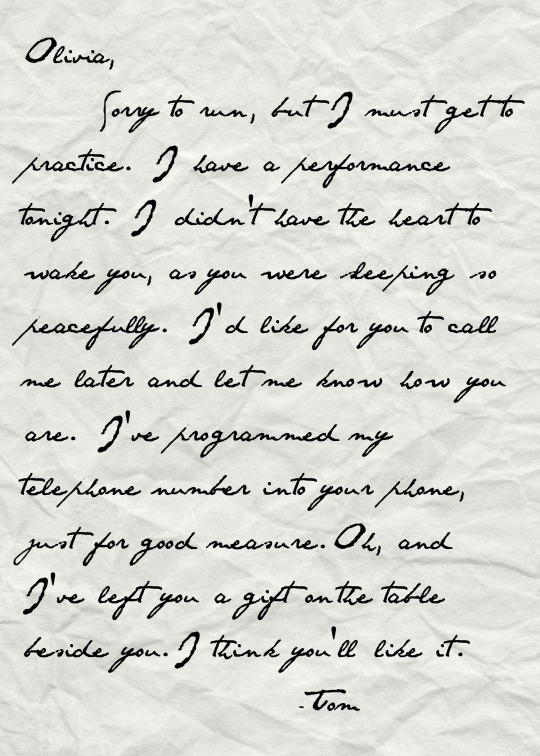 Olivia,
Sorry to run, but I must get to
practice. I have a performance
tonight. I didn't have the heart to
wake you, as you were sleeping so
peacefully. I'd like for you to call
me later and let me know how you
are. I've programmed my
telephone number into your phone,
just for good measure. Oh, and
I've left you a gift on the table
beside you. I think you'll like it.
-Tom